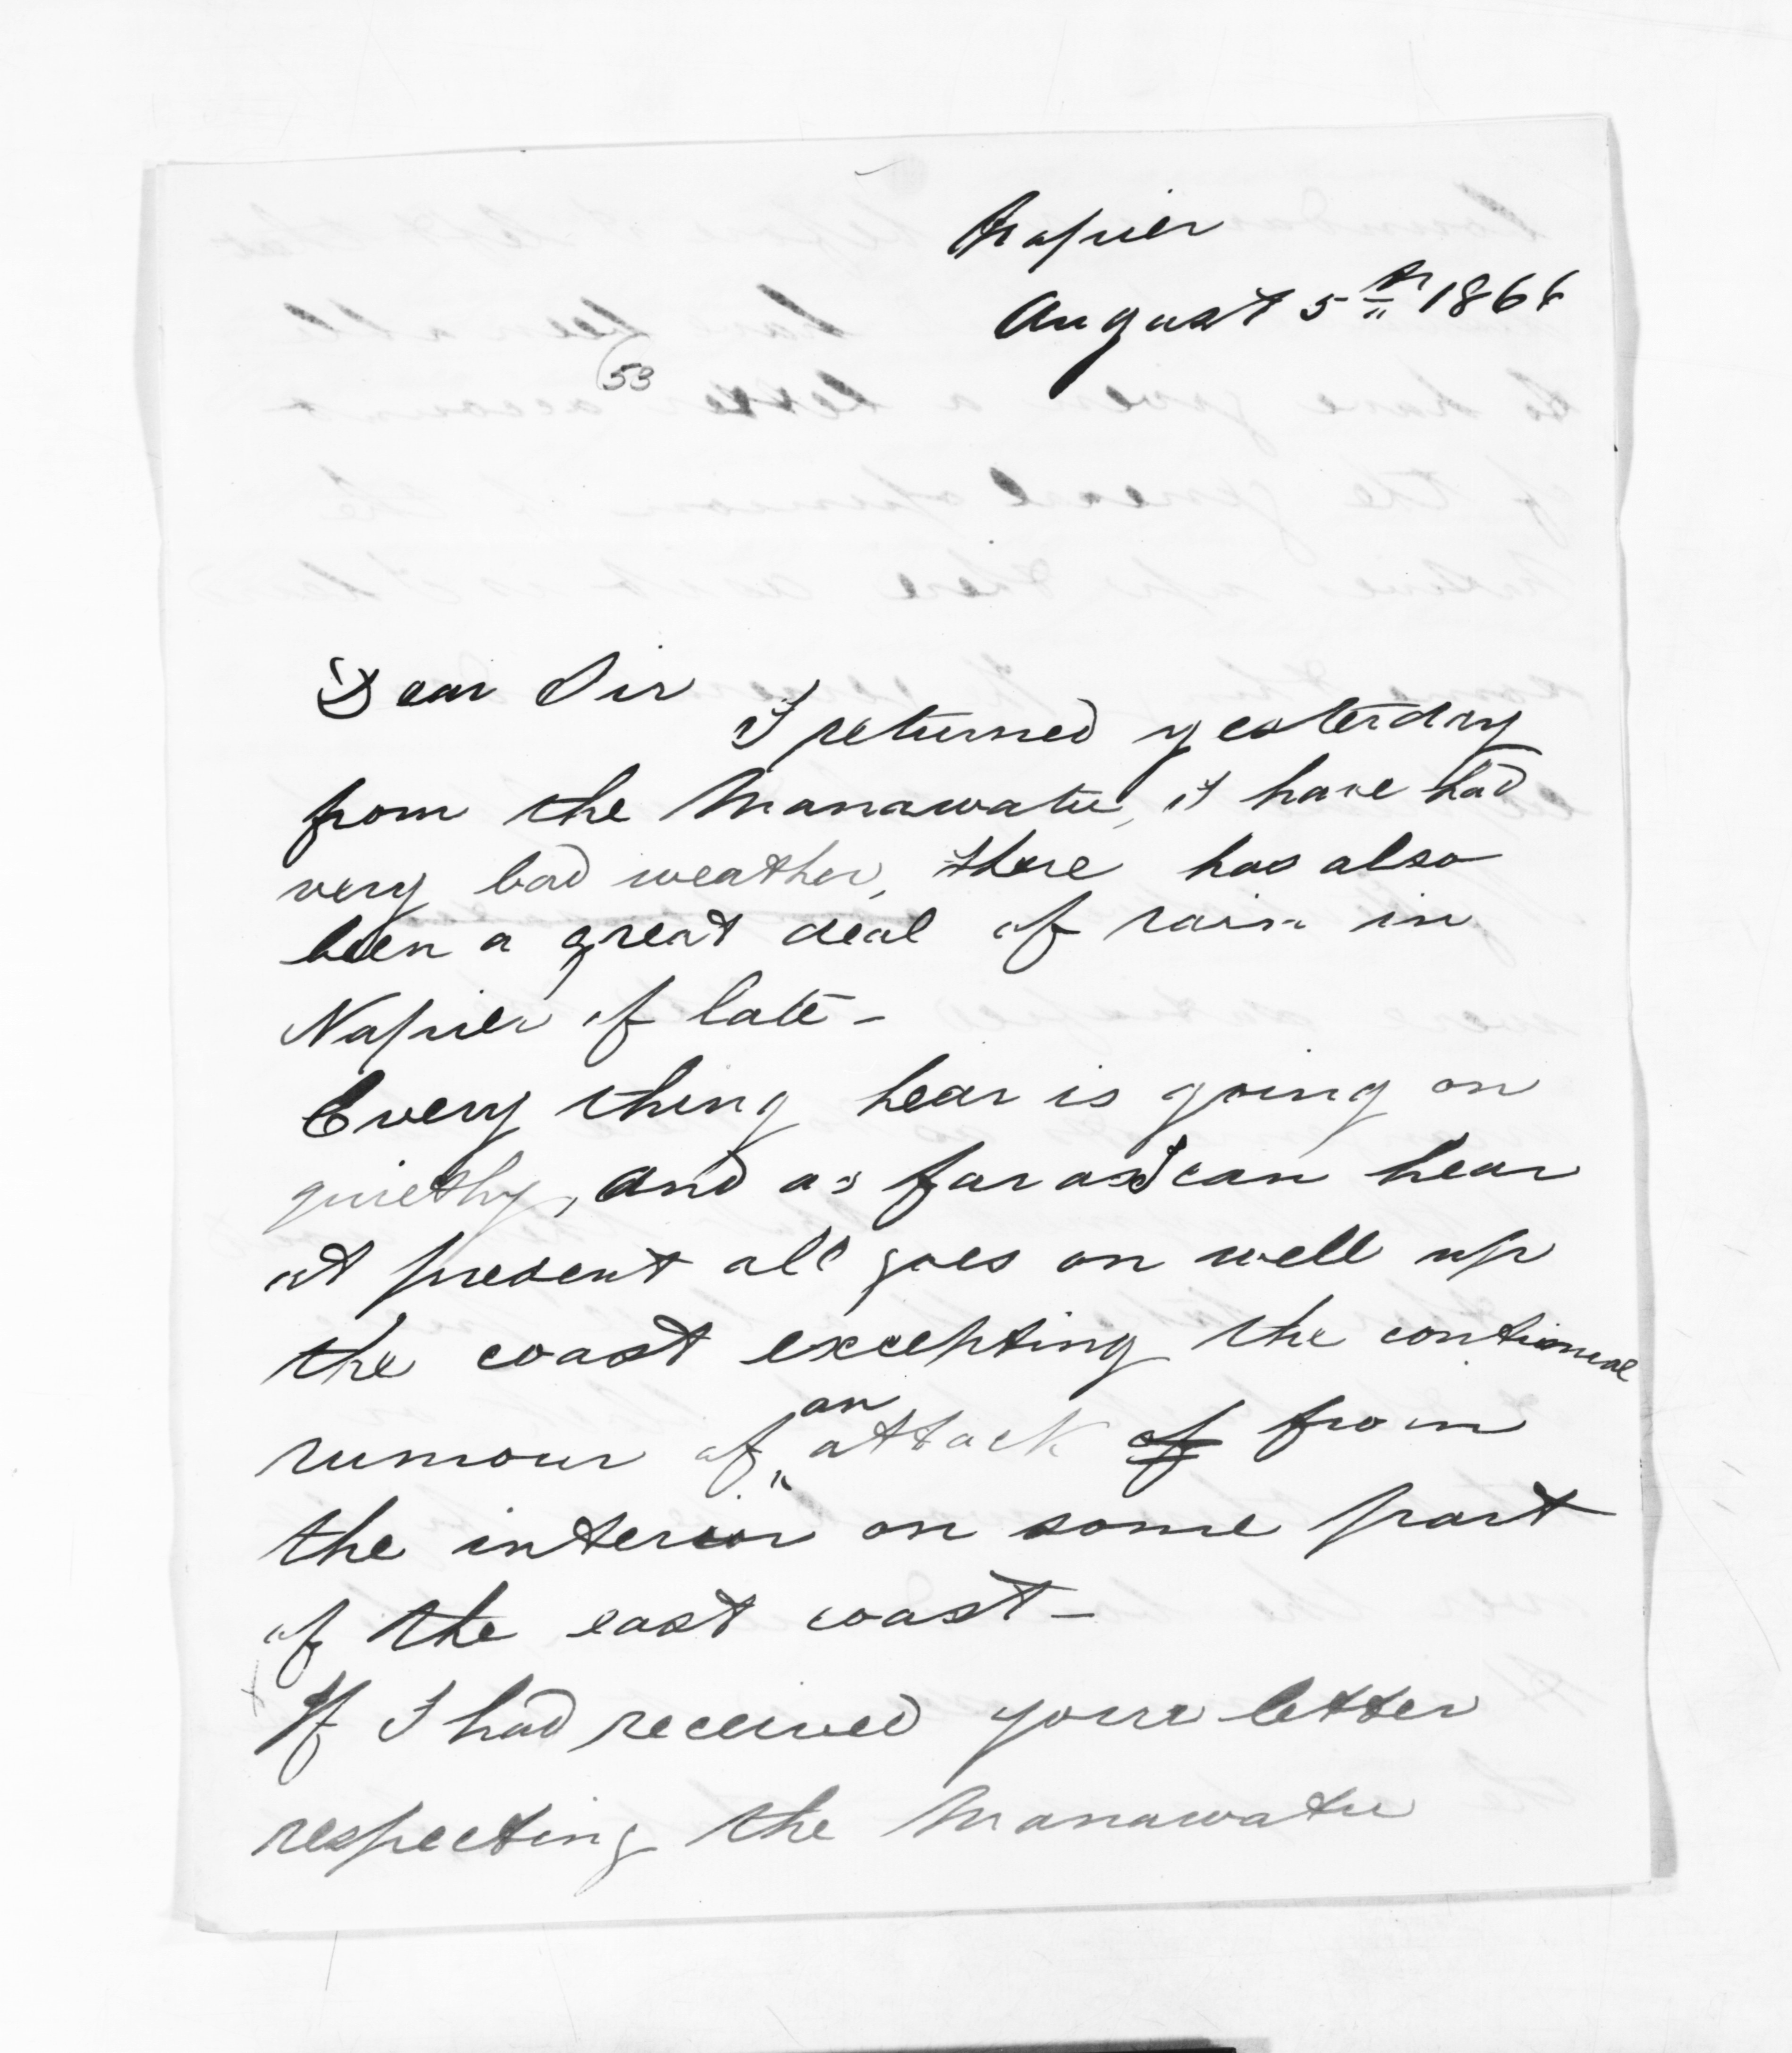 Napier
August 5th 1866
53
Dear Sir
I returned yesterday
from the Manawatu, I have had
very bad weather, there has also
been a great deal of rain in
Napier of late -
Every thing hear is going on
quietly, and as far as I can hear
at present all goes on well up
the coast excepting the continual
rumour of an attack of from
the interior on some part
of the east coast -
If I had received your letter
respecting the Manawatu